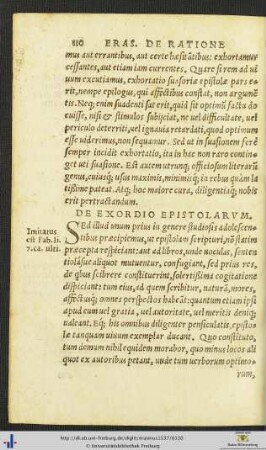 110 ERAS. DE RATIONE
mus aut errantibus, aut certe hæsitātibus: exhortamur
cessantes, aut etiam iam currentes. Quare si rem ad ui
uum excutiamus, exhortatio suasoriæ epistolæ pars e-
rit, nempe epilogus, qui affectibus constat, non argumē
tis. Neq; enim suadenti sat erit, quid sit optimū factu do
cuisse, nisi & stimulos subijciat, ne uel difficultate, uel
periculo deterriti, uel ignauia retardati, quod optimum
esse uiderimus, non sequamur. Sed ut in suasionem ferè
semper incidit exhortatio, ita in hac non raro contin-
get uti suasione. Est autem utrunq; officiosum literarū
genus, cuius q; usus maximis, minimis q; in rebus quàm la
tissime pateat. Atq; hoc maiore cura, diligentia q; nobis
erit pertractandum.
DE EXORDIO EPISTOLARVM.
Imitatus
est Fab. li.
7. ca. ult.
Sed illud unum prius in genere studiosis adolescen-
tibus præcipiemus, ut epistolam scripturi, nō statim
præcepta respiciant: aut ad libros, unde uoculas, senten
tiolas ue aliquot mutuentur, confugiant, sed prius res,
de qbus scribere constituerint, solertissima cogitatione
dispiciant: tum eius, ad quem scribitur, naturā, mores,
affectus q; omnes perspectos habeāt: quantum etiam ipsi
apud eum uel gratia, uel autoritate, uel meritis deniq;
ualeant. Eq; his omnibus diligenter pensiculatis, epistolæ
tanquam uiuum exemplar ducant. Quo constituto,
tum demum nihil equidem morabor, quo minus locos ali
quot ex autoribus petant, unde tum uerborum optimo-
rum,
© Universitätsbibliothek Freiburg